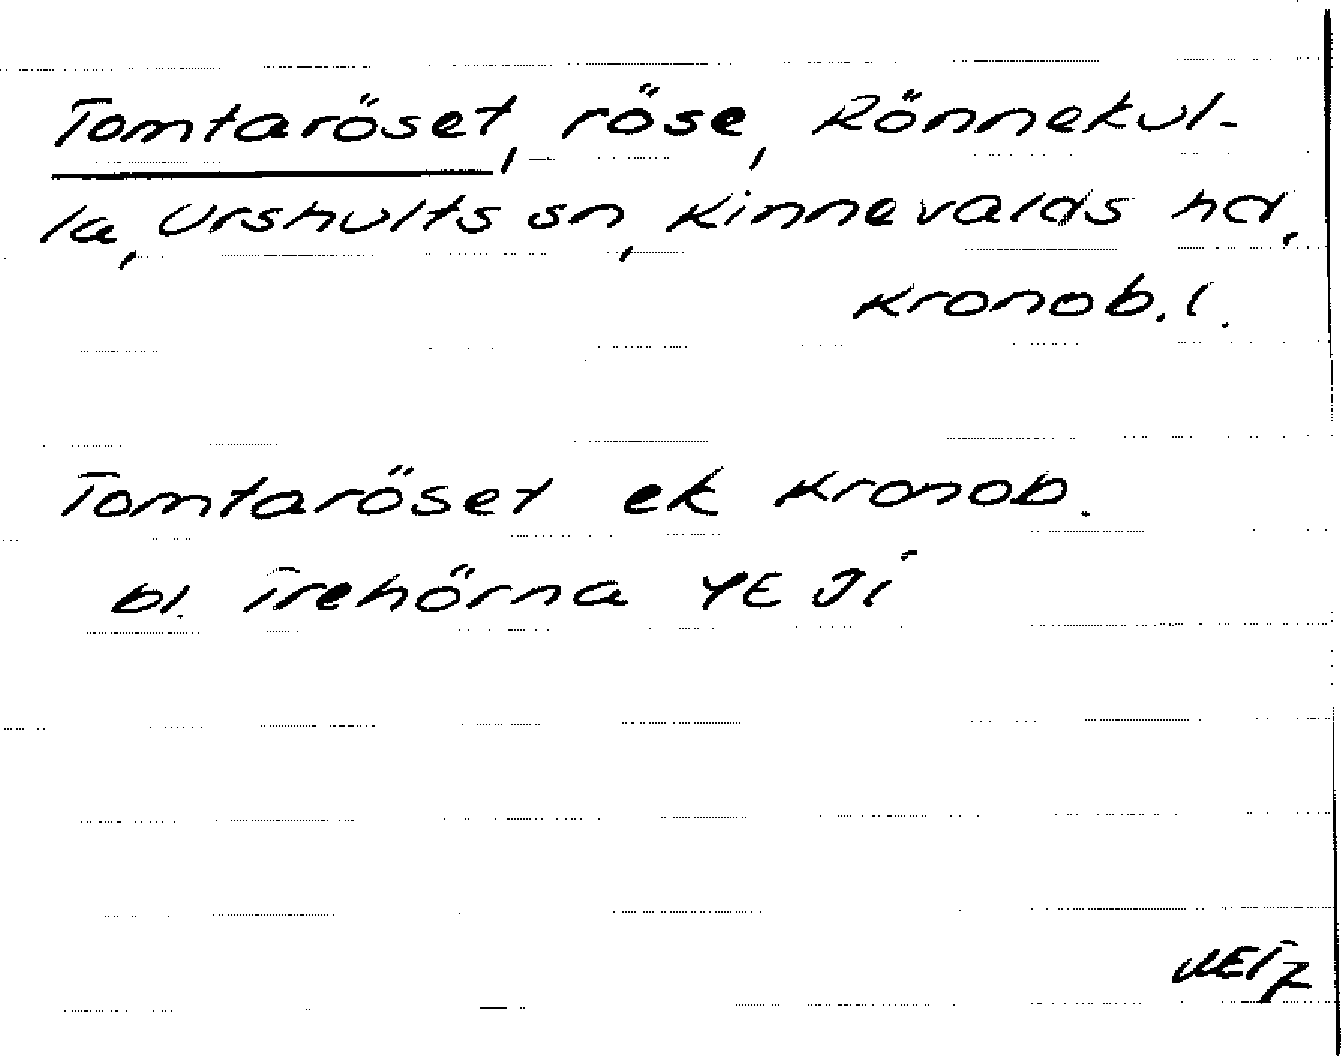 Tomtaröset, röse, Rönnekul-
la, Urshults sn, Kinnevalds hd,
Kronob. l.
Tomtaröset ek Kronob.
bl. Trehörna